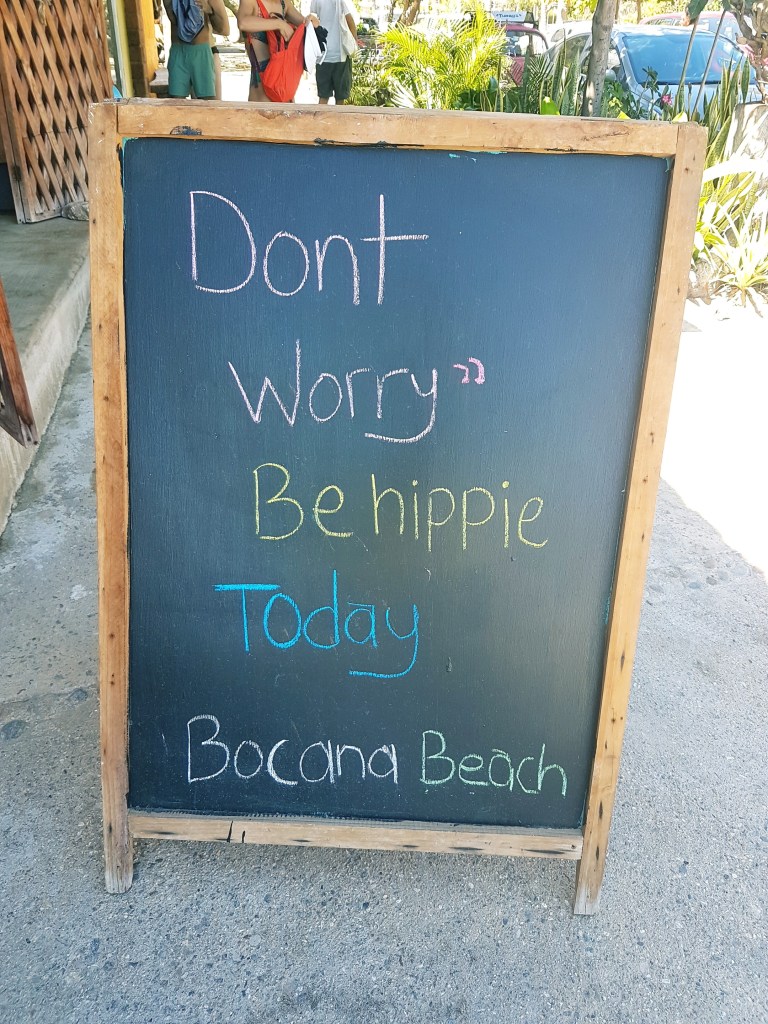 Dont
Worry"
Be hippie
Today
Bocana Beach